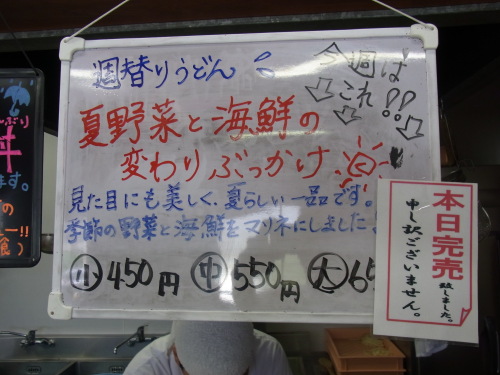 週替りうどん
今週は
これ!!
夏野菜と海鮮の
変わりぶっかけ
見た目にも美しく、夏らしい一品です。
季節の野菜と海鮮をマリネにしました
小 450円 中 550円 大 65
本日完売
致しました。
申し訳ございません。
ぶり
丼
ます。
の
ー!!
食)